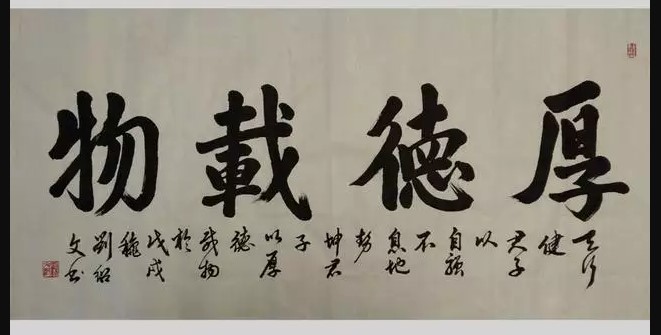 厚德載物
天行
健
君子
以
自強
不
息地
勢
坤君
子
以厚
德
載物
於
戊戌
穐
劉紹
文書